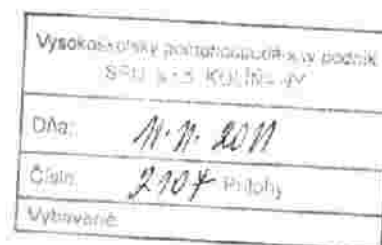 Vysokoškolský poľnohospodársky podnik
SPU s.r.o. KOLÍŇANY
Dňa: 11.11.2011
Číslo: 2107 Prílohy
Vybavené: